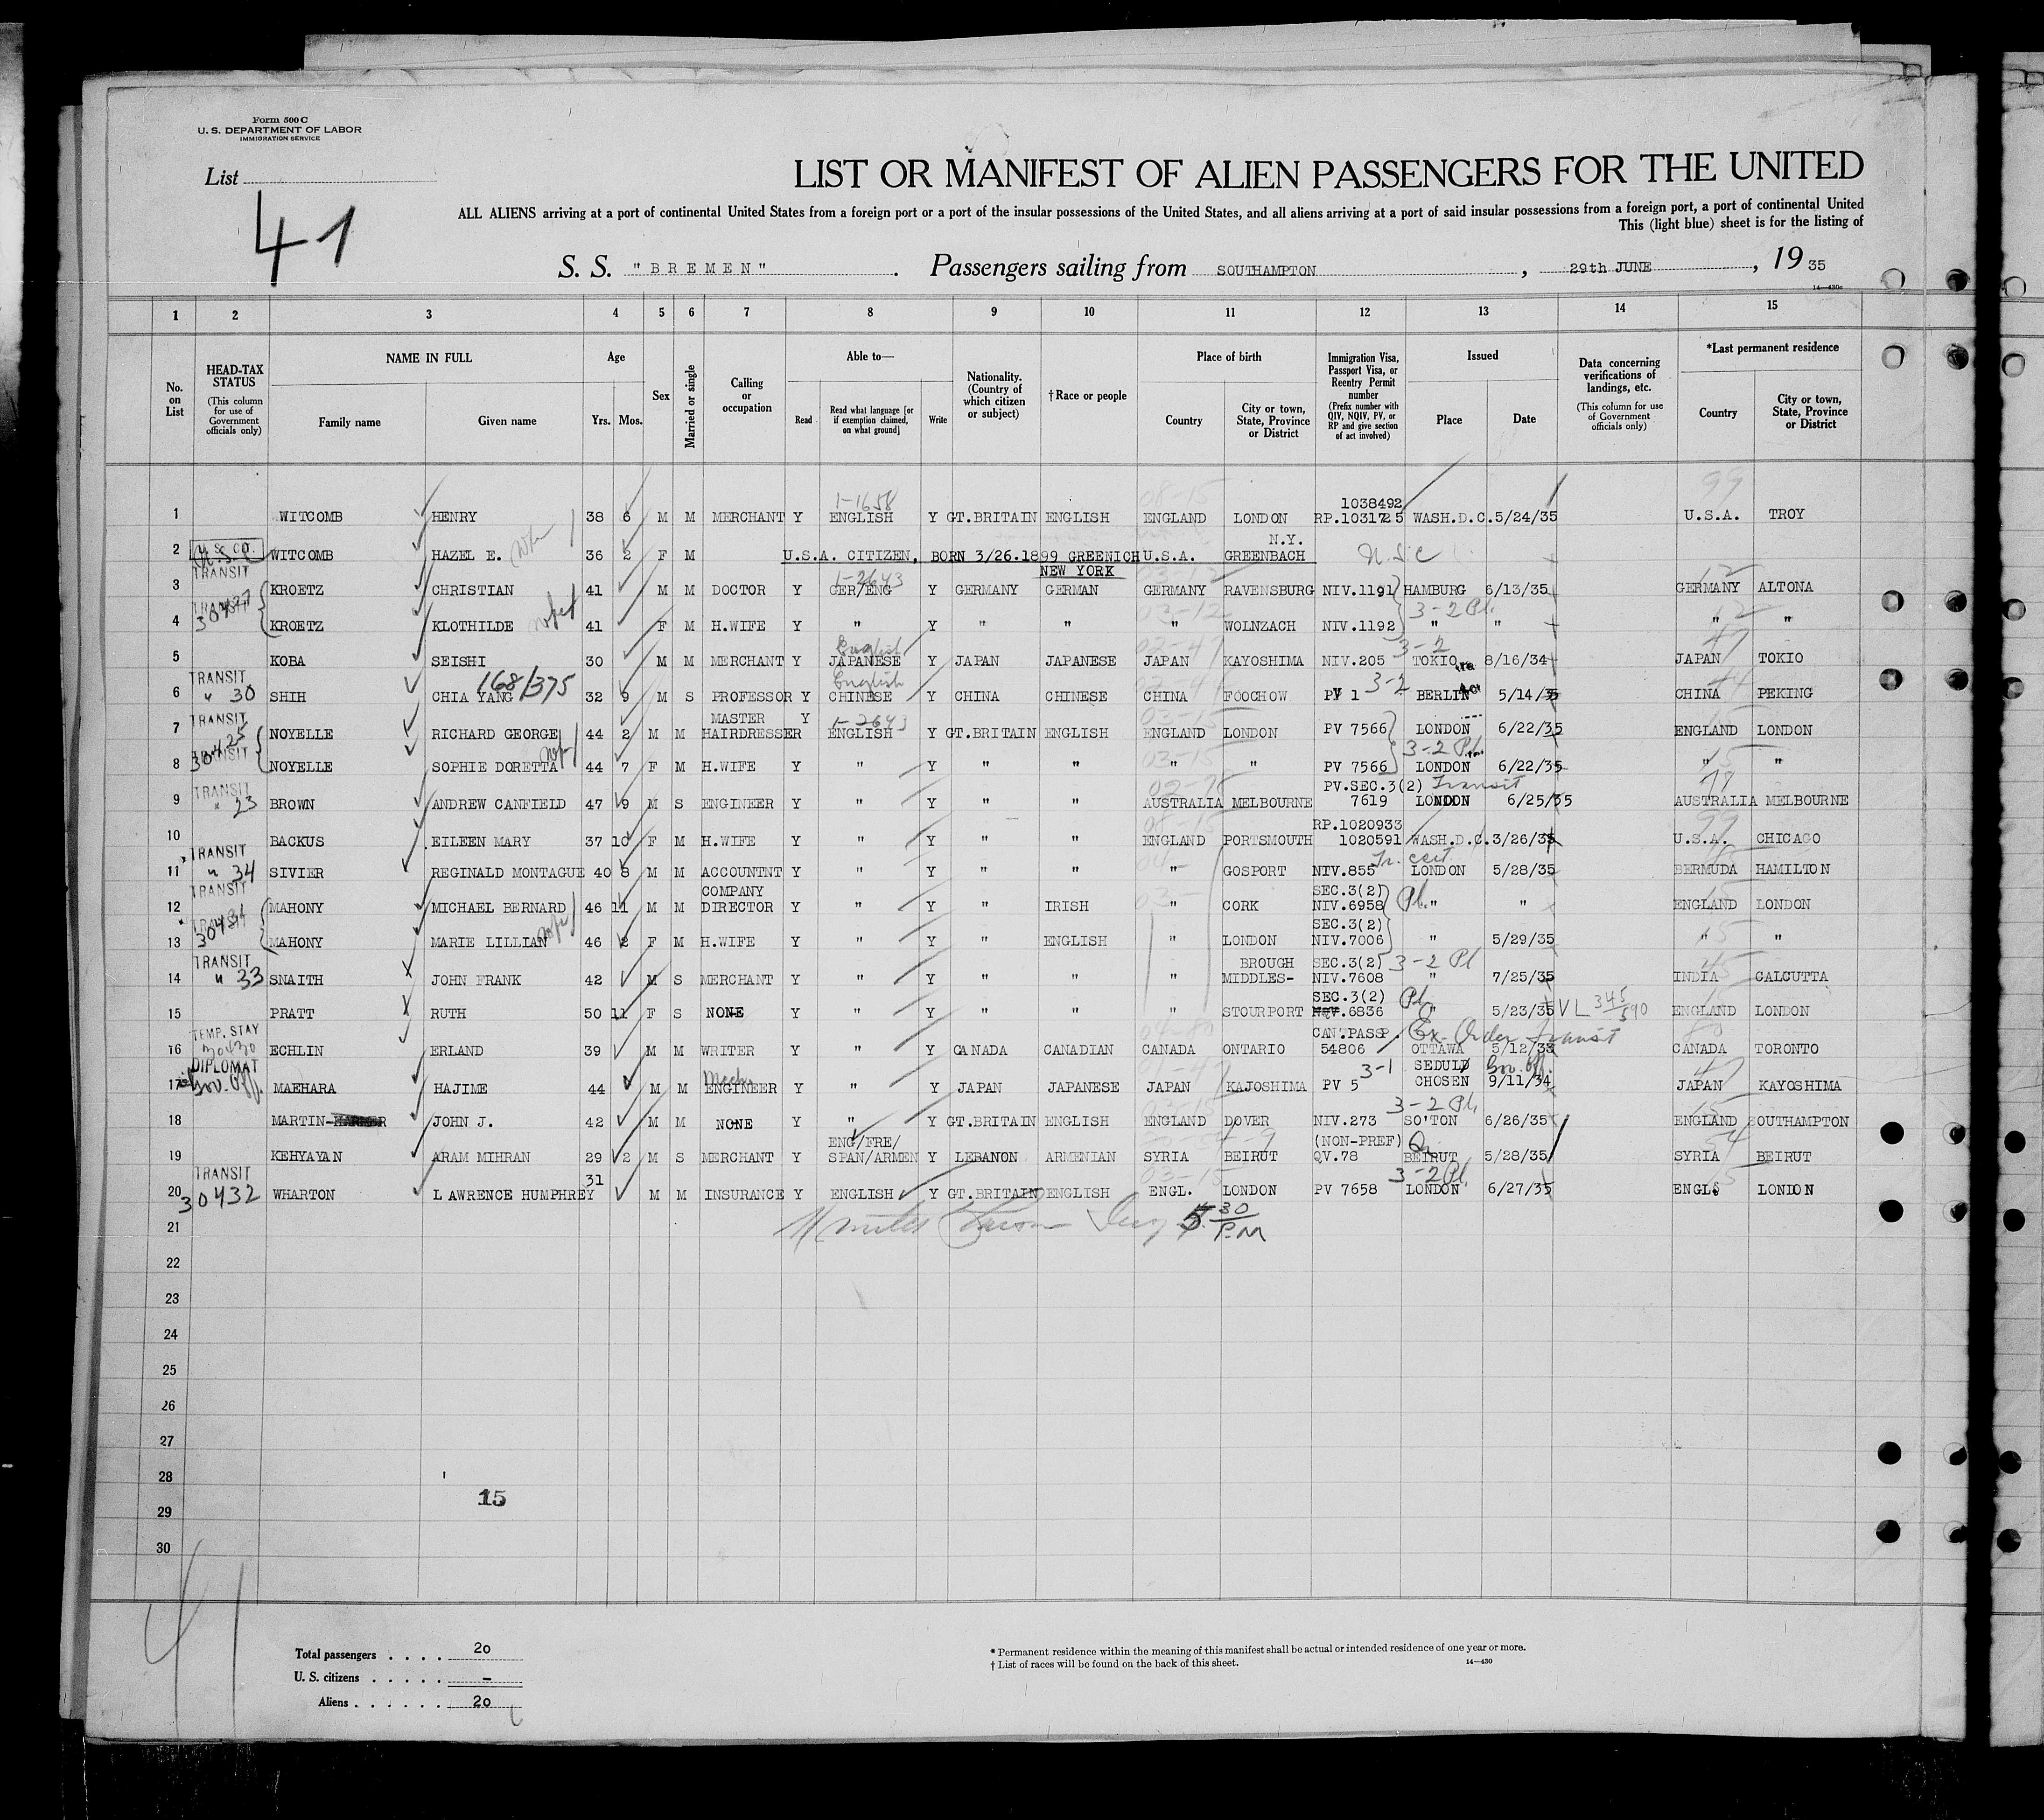 Form 500 C
U. S. DEPARTMENT OF LABOR
IMMIGRATION SERVICE
List
41
LIST OR MANIFEST OF ALIEN PASSENGERS FOR THE UNITED
ALL ALIENS arriving at a port of continental United States from a foreign port or a port of the insular possessions of the United States, and all aliens arriving at a port of said insular possessions from a foreign port, a port of continental United
This (light blue) sheet is for the listing of
S. S. "BREMEN" . Passengers sailing from SOUTHAMPTON , 29th JUNE , 19 35
14—430c
1 2 3 4 5 6 7 8 9 10 11 12 13 14 15
No. on List
HEAD-TAX STATUS
(This column for use of Government officials only)
NAME IN FULL
Family name Given name
Age
Yrs. Mos.
Sex
Married or single
Calling or occupation
Able to—
Read
Read what language [or if exemption claimed, on what ground]
Write
Nationality. (Country of which citizen or subject)
†Race or people
Place of birth
Country
City or town, State, Province or District
Immigration Visa, Passport Visa, or Reentry Permit number
(Prefix number with QIV, NQIV, PV, or RP and give section of act involved)
Issued
Place Date
Data concerning verifications of landings, etc.
(This column for use of Government officials only)
*Last permanent residence
Country
City or town, State, Province or District
1-1658 08-15 1038492 99
1 WITCOMB HENRY 38 6 M M MERCHANT Y ENGLISH Y GT.BRITAIN ENGLISH ENGLAND LONDON RP.1031725 WASH.D.C. 5/24/35 U.S.A. TROY
N.Y.
2 WITCOMB HAZEL E. 36 2 F M U.S.A. CITIZEN, BORN 3/26.1899 GREENICH U.S.A. GREENBACH
NEW YORK
TRANSIT 1-2643
3 KROETZ CHRISTIAN 41 M M DOCTOR Y GER/ENG Y GERMANY GERMAN GERMANY RAVENSBURG NIV.1191 HAMBURG 6/13/35 GERMANY ALTONA
TRANSIT 30427 03-12 3-2 Pl. 12
4 KROETZ KLOTHILDE 41 F M H.WIFE Y " Y " " WOLNZACH NIV.1192 " " " "
English 02-47 3-2 47
5 KOBA SEISHI 30 M M MERCHANT Y JAPANESE Y JAPAN JAPANESE JAPAN KAYOSHIMA NIV.205 TOKIO 8/16/34 JAPAN TOKIO
TRANSIT 168/375 English 3-2
6 " 30 SHIH CHIA YANG 32 9 M S PROFESSOR Y CHINESE Y CHINA CHINESE CHINA FOOCHOW PV 1 BERLIN 5/14/35 CHINA PEKING
TRANSIT MASTER Y 1-2643 03-15
7 NOYELLE RICHARD GEORGE 44 2 M M HAIRDRESSER ENGLISH Y GT.BRITAIN ENGLISH ENGLAND LONDON PV 7566 LONDON 6/22/35 ENGLAND LONDON
30425 TRANSIT 03-15 3-2 Pl. 15
8 NOYELLE SOPHIE DORETTA 44 7 F M H.WIFE Y " Y " " " " PV 7566 LONDON 6/22/35 " "
TRANSIT PV.SEC.3(2) Transit
9 " 23 BROWN ANDREW CANFIELD 47 9 M S ENGINEER Y " Y " " AUSTRALIA MELBOURNE 7619 LONDON 6/25/35 AUSTRALIA MELBOURNE
08-15 RP.1020933 99
10 BACKUS EILEEN MARY 37 10 F M H.WIFE Y " Y " " ENGLAND PORTSMOUTH 1020591 WASH.D.C. 3/26/35 U.S.A. CHICAGO
TRANSIT
11 " 34 SIVIER REGINALD MONTAGUE 40 8 M M ACCOUNTNT Y " Y " " " GOSPORT NIV.855 LONDON 5/28/35 BERMUDA HAMILTON
TRANSIT COMPANY SEC.3(2)
12 MAHONY MICHAEL BERNARD 46 11 M M DIRECTOR Y " Y " IRISH " CORK NIV.6958 Pl. " " ENGLAND LONDON
TRANSIT 30431 SEC.3(2)
13 MAHONY MARIE LILLIAN 46 2 F M H.WIFE Y " Y " ENGLISH " LONDON NIV.7006 " 5/29/35 " "
TRANSIT BROUGH SEC.3(2) 3-2 Pl
14 " 33 SNAITH JOHN FRANK 42 M S MERCHANT Y " Y " " " MIDDLES- NIV.7608 " 7/25/35 INDIA CALCUTTA
SEC.3(2) Pl.
15 PRATT RUTH 50 11 F S NONE Y " Y " " " STOURPORT NIV.6836 " 5/23/35 VL 345/590 ENGLAND LONDON
TEMP. STAY 30430 CAN.PASSP. Ex. Order Transit
16 ECHLIN ERLAND 39 M M WRITER Y " Y CANADA CANADIAN CANADA ONTARIO 54806 OTTAWA 5/12/33 CANADA TORONTO
DIPLOMAT Gov. Off. Mech. 3-1 SEDULD Gov. Off.
17 MAEHARA HAJIME 44 M M ENGINEER Y " Y JAPAN JAPANESE JAPAN KAJOSHIMA PV 5 CHOSEN 9/11/34 JAPAN KAYOSHIMA
3-2 Pl.
18 MARTIN- JOHN J. 42 M M NONE Y " Y GT.BRITAIN ENGLISH ENGLAND DOVER NIV.273 SO'TON 6/26/35 ENGLAND SOUTHAMPTON
ENG/FRE/ (NON-PREF) Q 54
19 KEHYAYAN ARAM MIHRAN 29 2 M S MERCHANT Y SPAN/ARMEN Y LEBANON ARMENIAN SYRIA BEIRUT QV.78 BEIRUT 5/28/35 SYRIA BEIRUT
TRANSIT 31 03-15 3-2 Pl.
20 30432 WHARTON LAWRENCE HUMPHREY M M INSURANCE Y ENGLISH Y GT.BRITAIN ENGLISH ENGL. LONDON PV 7658 LONDON 6/27/35 ENGL. LONDON
21 5 30 P.M
22
23
24
25
26
27
28
15
29
30
41
Total passengers . . . . 20
U. S. citizens . . . . . –
Aliens . . . . . . 20
* Permanent residence within the meaning of this manifest shall be actual or intended residence of one year or more.
† List of races will be found on the back of this sheet.
14—430